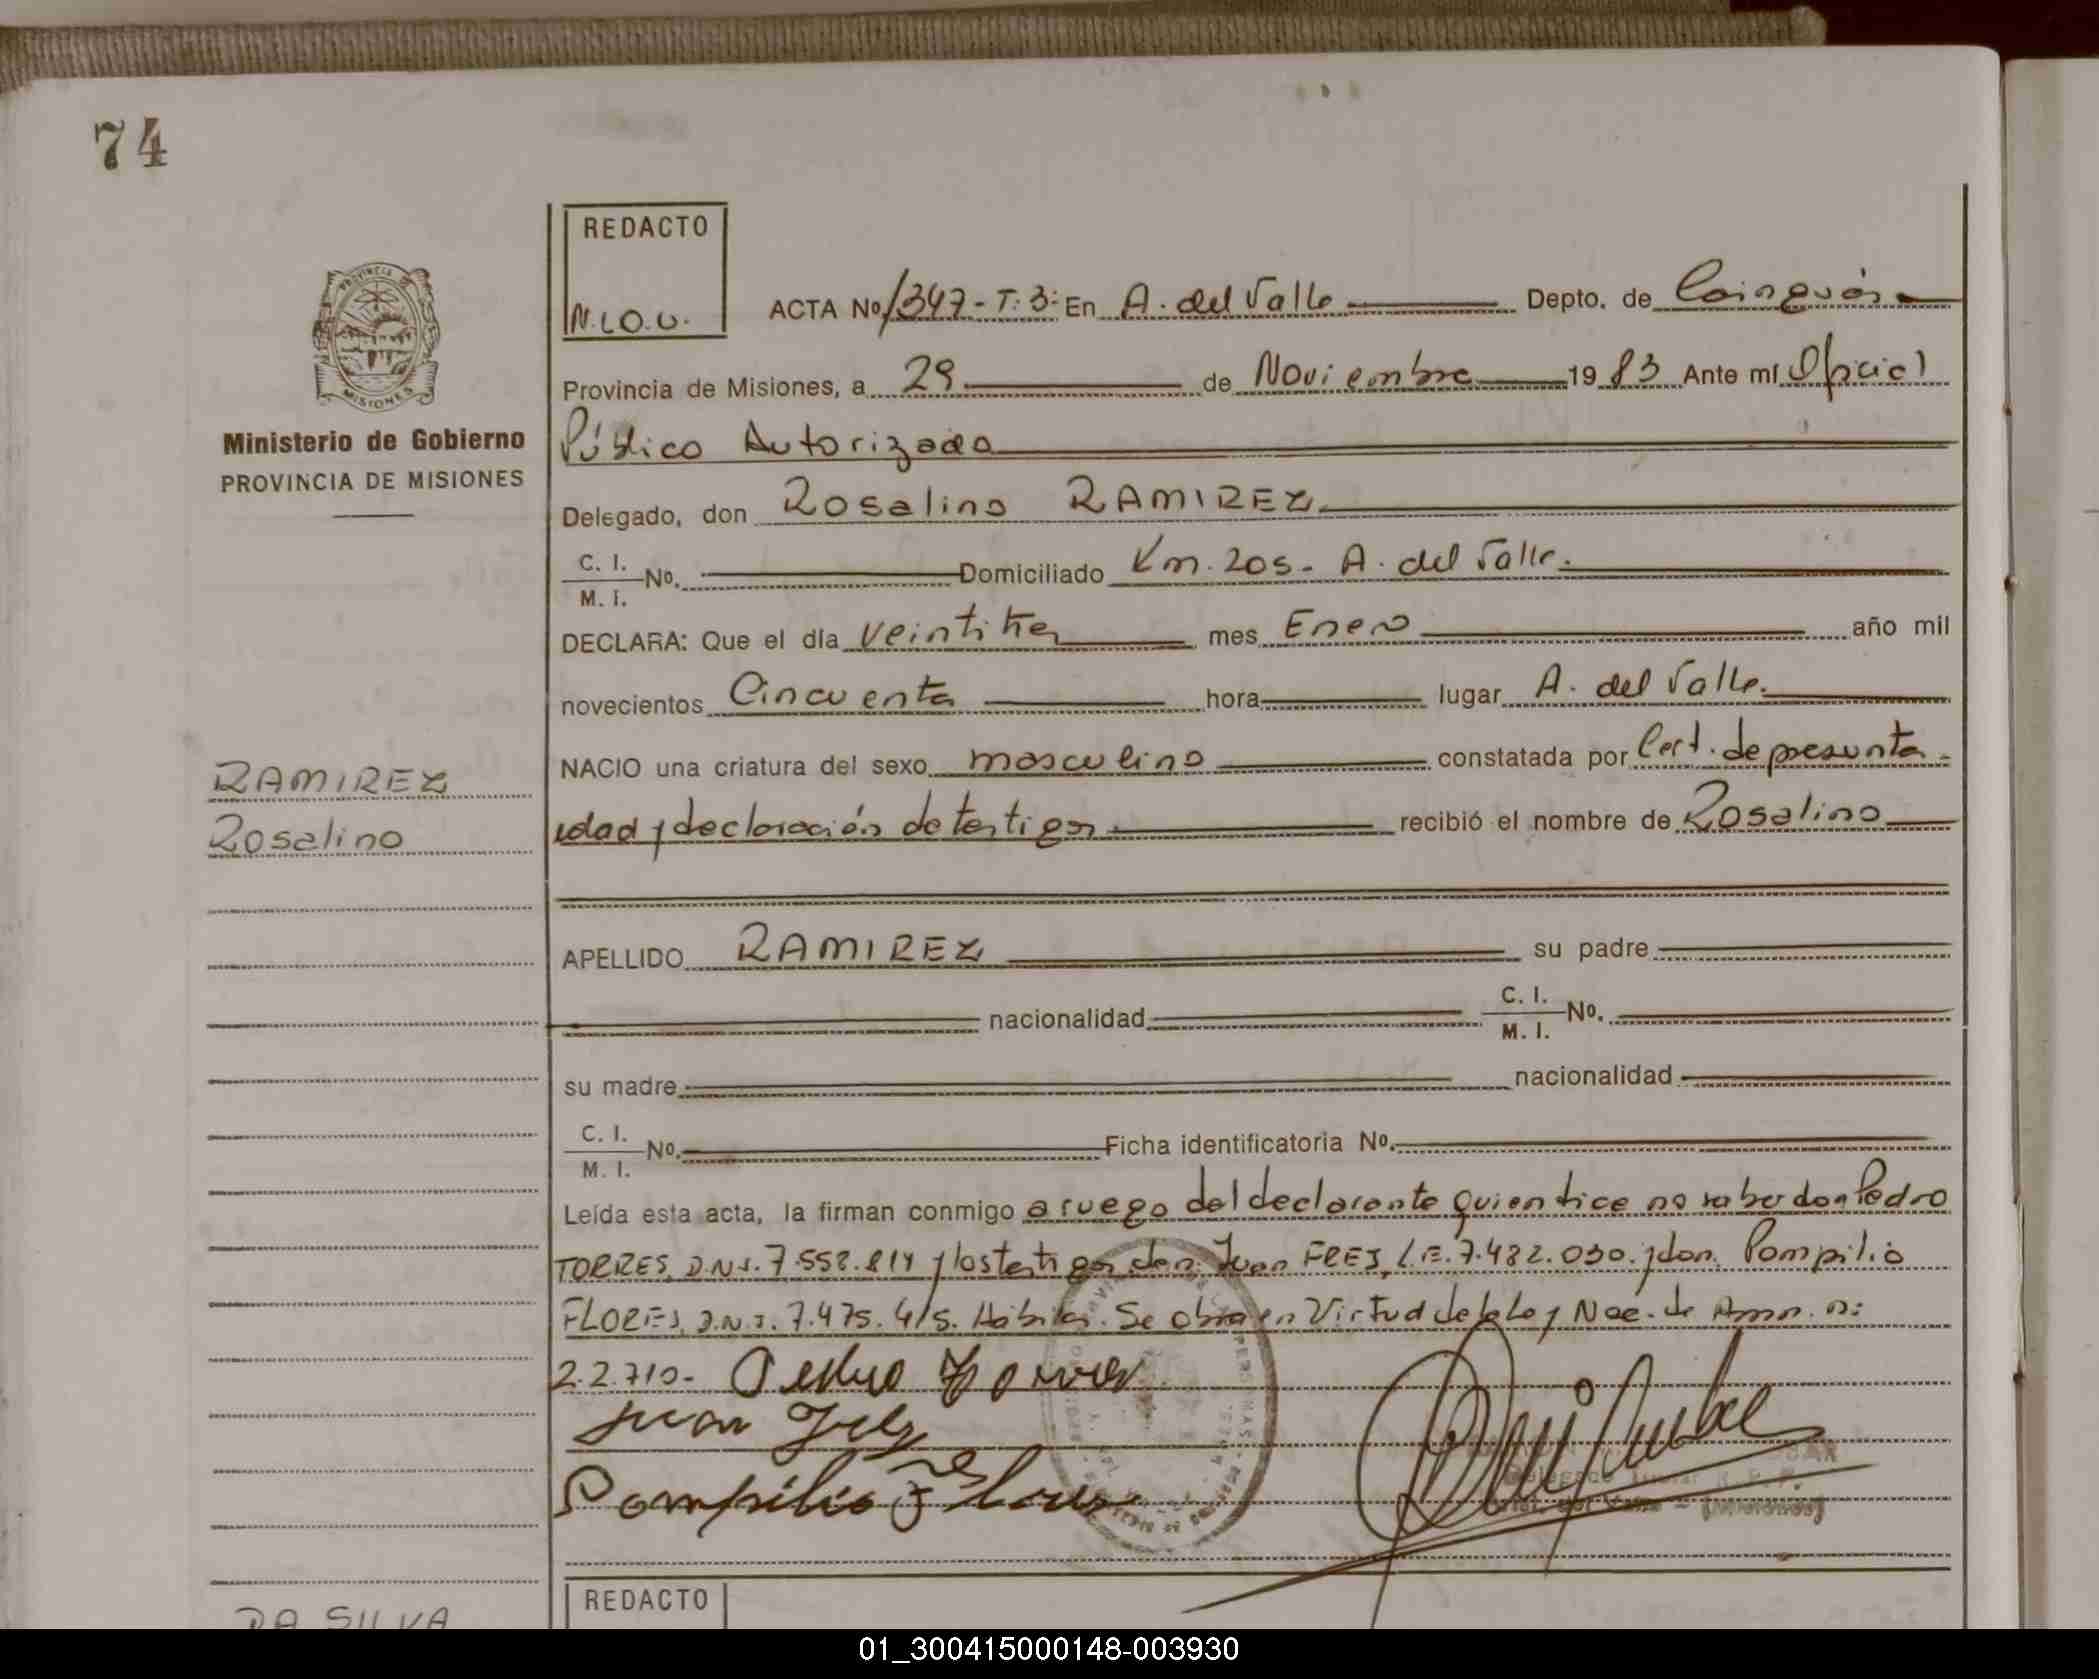 74
REDACTO
N.LO.U.
ACTA No. 1347-T:3: En A. del Valle Depto. de Cainguás
Provincia de Misiones, a 29 de Noviembre 1983 Ante mí Oficial
Público Autorizado
Delegado, don Rosalino RAMIREZ
C. I.
M. I. No. Domiciliado Km. 205- A. del Valle.
DECLARA: Que el día veintitres mes Enero año mil
novecientos Cincuenta hora lugar A. del Valle.
NACIO una criatura del sexo masculino constatada por Cert. de presunta
edad y declaración de testigos recibió el nombre de Rosalino
APELLIDO RAMIREZ su padre
nacionalidad C. I.
M. I. No.
su madre nacionalidad
C. I.
M. I. No. Ficha identificatoria No.
Leída esta acta, la firman conmigo a ruego del declarante quien dice no saber don Pedro
TORRES, D.N.I. 7.558.814 y los testigos don Juan FRES, L.E. 7.482.030. y don Pompilio
FLORES, D.N.I. 7.475.415. Hábiles. Se obra en Virtud de la Ley Nac. de Amn. n:
22.710- Pedro Torres
Juan
Pompilio Flores
PROVINCIA
MISIONES
Ministerio de Gobierno
PROVINCIA DE MISIONES
RAMIREZ
Rosalino
DA SILVA
REDACTO
01_300415000148-003930